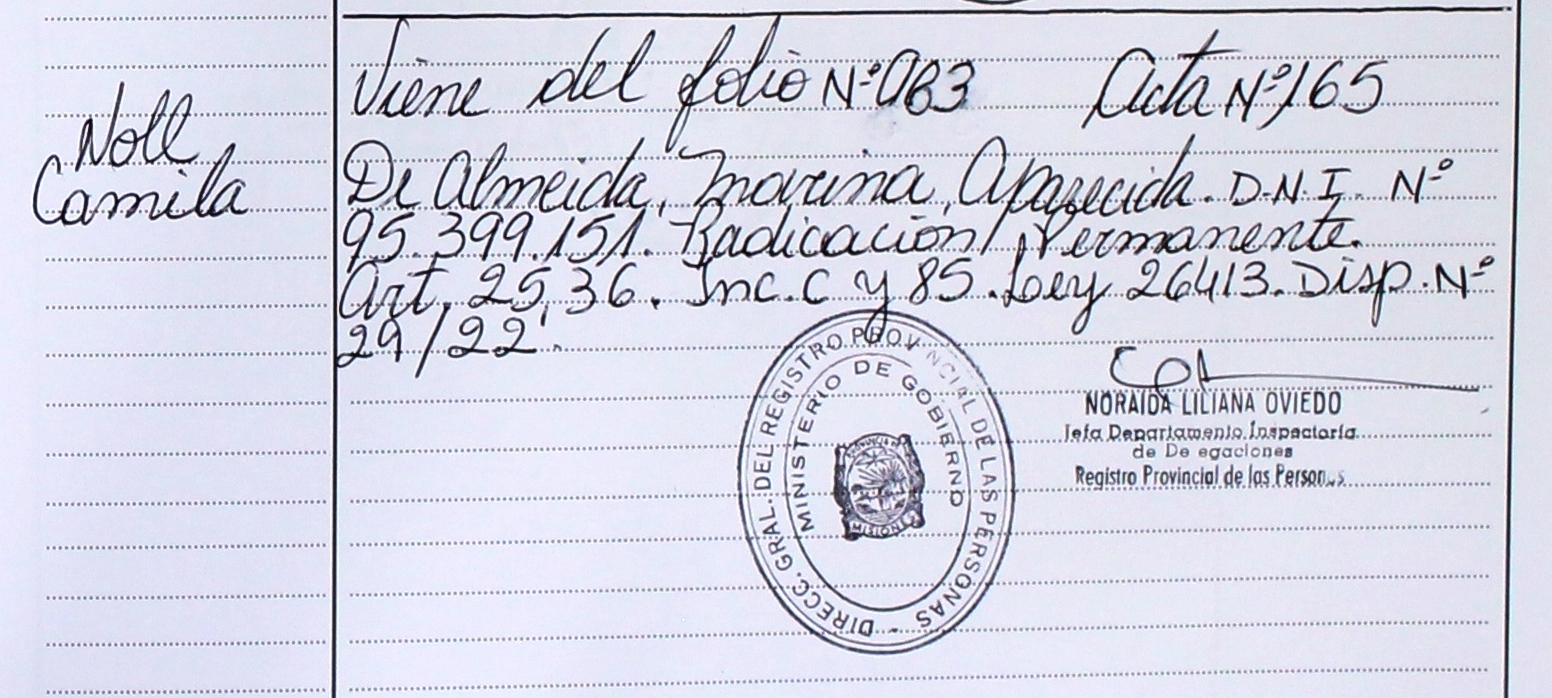 Noll
Camila
Viene del folio Nº 083 Acta Nº 165
De Almeida, Marina, Aparecida. D.N.I. Nº
95.399.151. Radicación Permanente.
Art. 25, 36. Inc. C y 85. Ley 26413. Disp. Nº
29/22.
DIRECC. GRAL. DEL REGISTRO PROVINCIAL DE LAS PERSONAS -
MINISTERIO DE GOBIERNO
PROVINCIA DE
MISIONES
NORAIDA LILIANA OVIEDO
Jefa Departamento Inspectoría
de De egaciones
Registro Provincial de las Personas